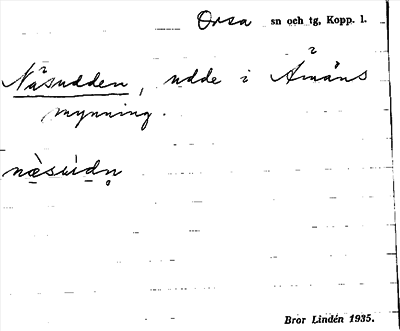 Orsa sn och tg, Kopp. l.
Näsudden, udde i Åmåns
mynning.
næ̀sùdn̥
Bror Lindén 1935.